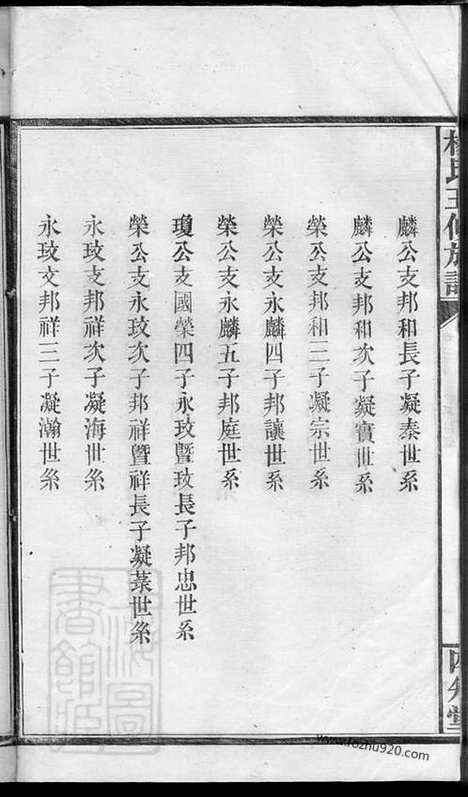 麟公支邦和長子凝泰世系
麟公支邦和次子凝實世系
榮公支邦和三子凝宗世系
榮公支永麟四子邦讓世系
榮公支永麟五子邦庭世系
瓊公支國榮四子永玟暨玟長子邦忠世系
榮公支永玟次子邦祥暨祥長子凝蒸世系
永玟支邦祥次子凝海世系
永玟支邦祥三子凝瀚世系
www.fozhu920.com